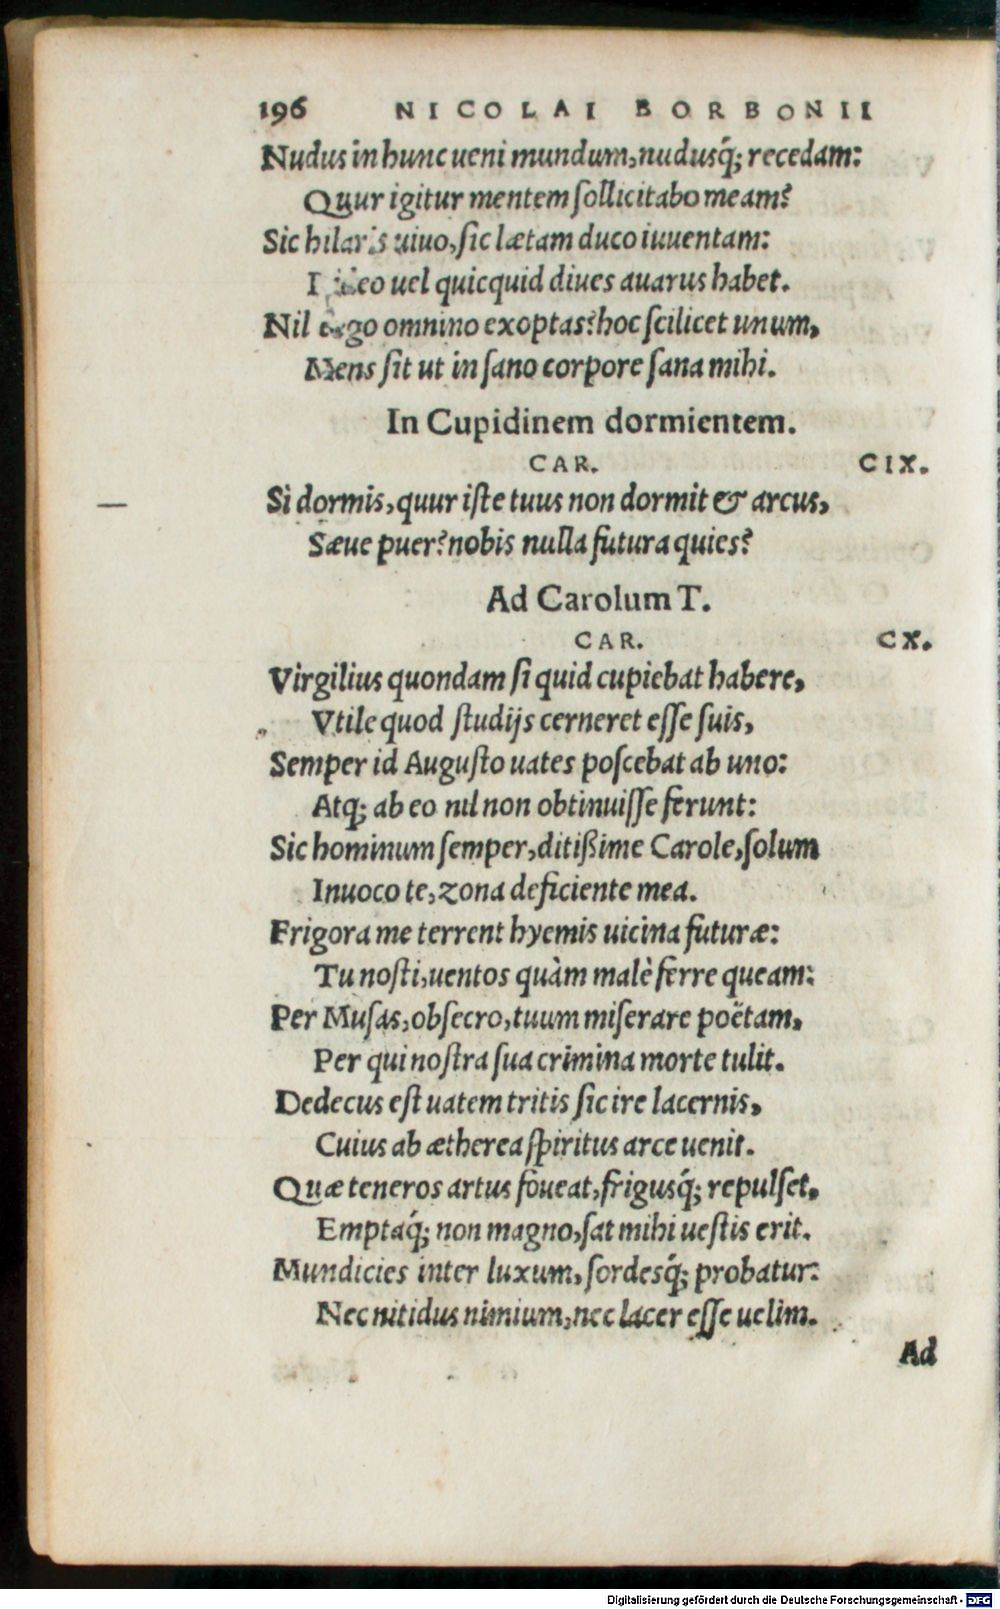 196 NICOLAI BORBONII
Nudus in hunc ueni mundum, nudusq́; recedam:
Quur igitur mentem ſollicitabo meam?
Sic hilaris uiuo, ſic lætam duco iuuentam:
uel quicquid diues auarus habet.
Nil ergo omnino exoptas? hoc ſcilicet unum,
Mens ſit ut in ſano corpore ſana mihi.
In Cupidinem dormientem.
CAR. CIX.
Si dormis, quur iſte tuus non dormit & arcus,
Sæue puer? nobis nulla futura quies?
Ad Carolum T.
CAR. CX.
Virgilius quondam ſi quid cupiebat habere,
Vtile quod ſtudijs cerneret eſſe ſuis,
Semper id Auguſto uates poſcebat ab uno:
Atq; ab eo nil non obtinuiſſe ferunt:
Sic hominum ſemper, ditißime Carole, ſolum
Inuoco te, zona deficiente mea.
Frigora me terrent hyemis uicina futuræ:
Tu noſti, uentos quàm malè ferre queam:
Per Muſas, obſecro, tuum miſerare poëtam,
Per qui noſtra ſua crimina morte tulit.
Dedecus eſt uatem tritis ſic ire lacernis,
Cuius ab ætherea ſpiritus arce uenit.
Quæ teneros artus foueat, frigusq́; repulſet,
Emptaq́; non magno, ſat mihi ueſtis erit.
Mundicies inter luxum, ſordesq́; probatur:
Nec nitidus nimium, nec lacer eſſe uelim.
Ad
Digitalisierung gefördert durch die Deutsche Forschungsgemeinschaft - DFG